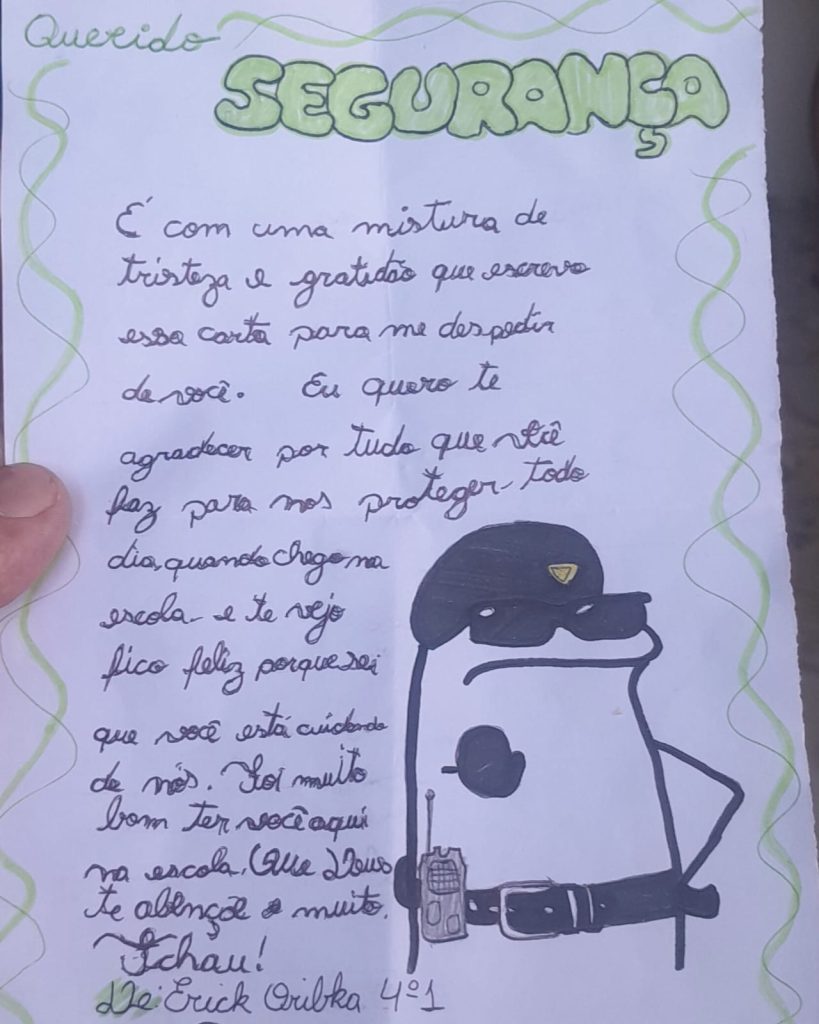 Querido
SEGURANÇA
É com uma mistura de
tristeza e gratidão que escrevo
essa carta para me despedir
de você. Eu quero te
agradecer por tudo que você
faz para nos proteger todo
dia, quando chego na
escola e te vejo
fico feliz porque sei
que você está cuidando
de nós. Foi muito
bom ter você aqui
na escola. Que Deus
te abençõe e muito.
Tchau!
De: Erick Oribka 4º1